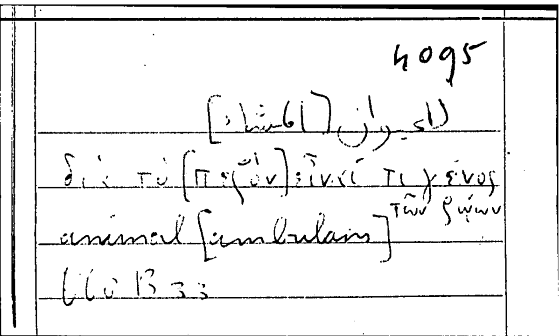 4095
الحيوان [المشاء]
διὰ τὸ [πεζὸν] εἶναί τι γένος
τῶν ζῴων
animal [ambulans]
B 33